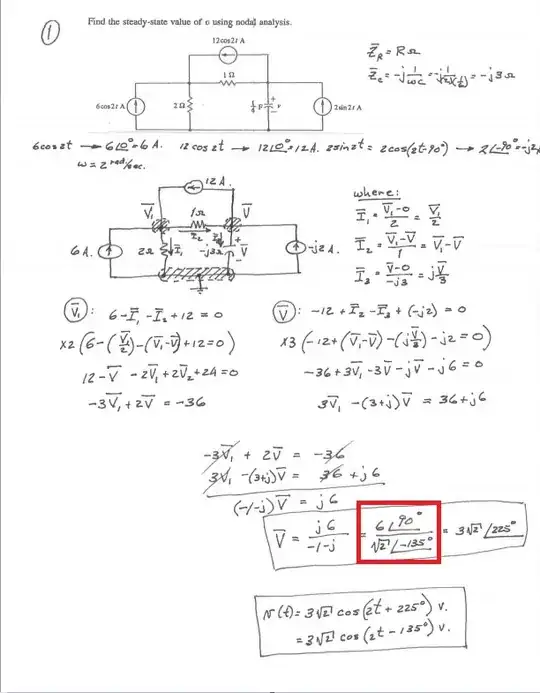 ①
Find the steady-state value of v using nodal analysis.
12cos2t A
1 Ω
6cos2t A
2 Ω
1/6 F
+
v
−
2sin2t A
Z̄_R = R Ω
Z̄_C = -j 1/ωC = -j 1/(2)(1/6) = -j3 Ω
6cos2t → 6∠0° = 6 A. 12cos2t → 12∠0° = 12 A. 2sin2t = 2cos(2t-90°) → 2∠-90° = -j2A
ω = 2 rad/sec.
12 A.
V̄₁
1Ω
V̄
Ī₂
Ī₃
6 A.
2Ω
Ī₁
-j3Ω
+
V̄
−
-j2 A.
where:
Ī₁ = V̄₁-0/2 = V̄₁/2
Ī₂ = V̄₁-V̄/1 = V̄₁-V̄
Ī₃ = V̄-0/-j3 = jV̄/3
V̄₁: 6-Ī₁-Ī₂+12 = 0
x2(6-(V̄₁/2)-(V̄₁-V̄)+12=0)
12-V̄ -2V̄₁+2V̄₂+24=0
-3V̄₁+2V̄ = -36
V̄: -12+Ī₂-Ī₃+(-j2) = 0
x3(-12+(V̄₁-V̄)-(jV̄/3)-j2=0)
-36+3V̄₁-3V̄-jV̄-j6 = 0
3V̄₁-(3+j)V̄ = 36+j6
-3V̄₁ + 2V̄ = -36
3V̄₁ -(3+j)V̄ = 36 +j6
(-1-j)V̄ = j6
V̄ = j6/-1-j = 6∠90°/√2∠-135° = 3√2∠225°
v(t) = 3√2 cos(2t+225°) v.
= 3√2 cos(2t-135°) v.